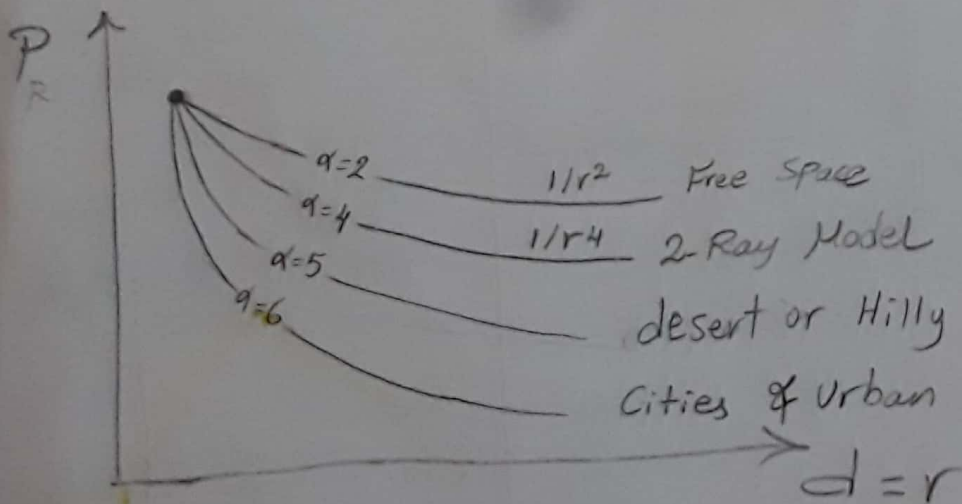 P
R
α=2 1/r² Free Space
α=4 1/r4 2-Ray Model
α=5 desert or Hilly
α=6 Cities & Urban
d=r